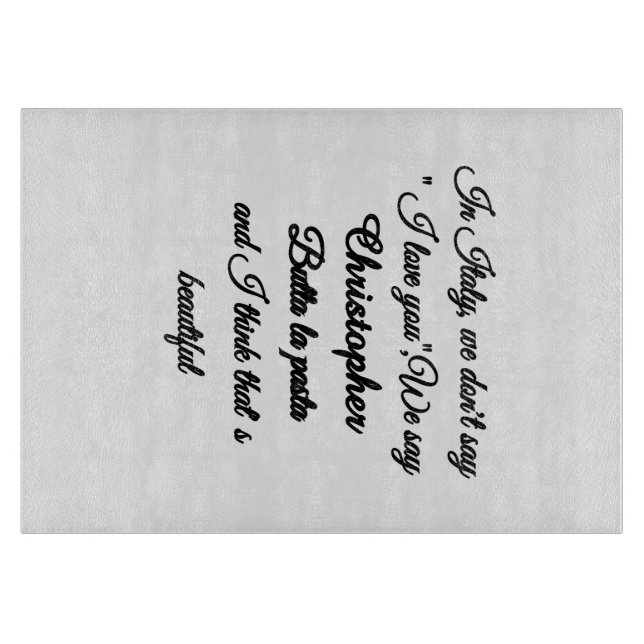 In Italy, we don't say
"I love you",We say
Christopher
Butta la pasta
and I think that's
beautiful